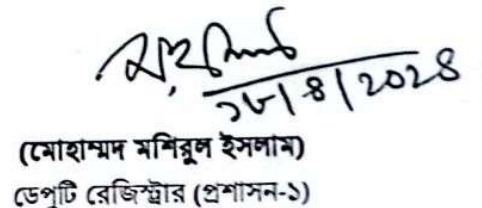 ১৮/৪/২০২৪
(মোহাম্মদ মশিরুল ইসলাম)
ডেপুটি রেজিস্ট্রার (প্রশাসন-১)